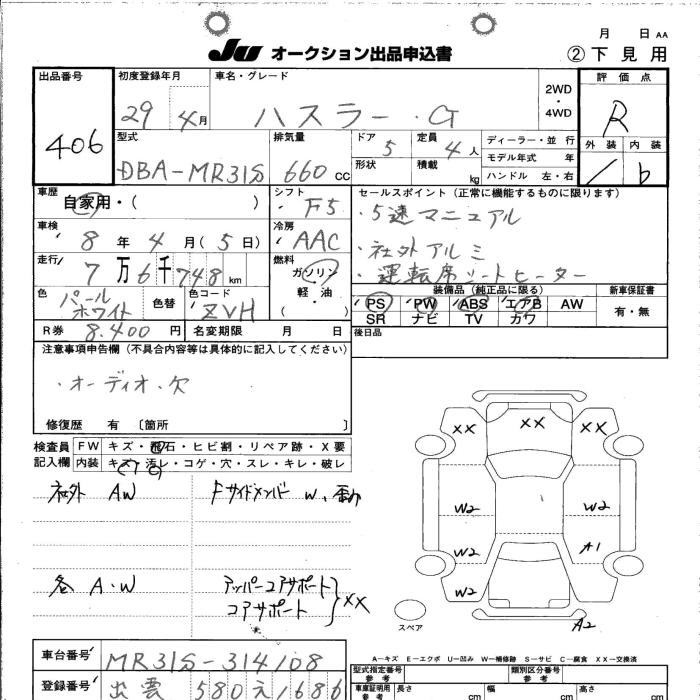 月 日 AA
JU オークション出品申込書 ②下見用
出品番号 初度登録年月 車名・グレード 評価点
406 29 4月 ハスラー・G 2WD・4WD R
型式 排気量 ドア 5 定員 4人 ディーラー・並行 外装 内装
DBA-MR31S 660cc 形状 積載 kg モデル年式 年
ハンドル 左・右 b
車歴 自家用・( ) シフト F5 セールスポイント(正常に機能するものに限ります)
車検 8年 4月(5日) 冷房 AAC ・5速マニュアル
・社外アルミ
走行 7万6千748km 燃料 ガソリン・軽・油( ) ・運転席シートヒーター
色 パールホワイト 色替 色コード ZVH 装備品(純正品に限る) 新車保証書
PS PW ABS エアB AW 有・無
SR ナビ TV カワ
R券 8.400円 名変期限 月 日 後日品
注意事項申告欄(不具合内容等は具体的に記入してください)
・オーディオ欠
修復歴 有 〔箇所 〕
検査員 FW キズ・飛石・ヒビ割・リペア跡・X要
記入欄 内装 キズ・汚レ・コゲ・穴・スレ・キレ・破レ
社外 AW FサイドメンバW、
各 A・W アッパーコアサポート
コアサポート XX
XX XX XX
W2 W2
W2 A1
W2
スペア A2
A-キズ E-エクボ U-凹み W-補修跡 S-サビ C-腐食 XX-交換済
車台番号 MR31S-314108 型式指定番号 参考 類別区分番号 参考
登録番号 出雲 580 え1686 車庫証明用 参考 長さ cm 幅 cm 高さ cm